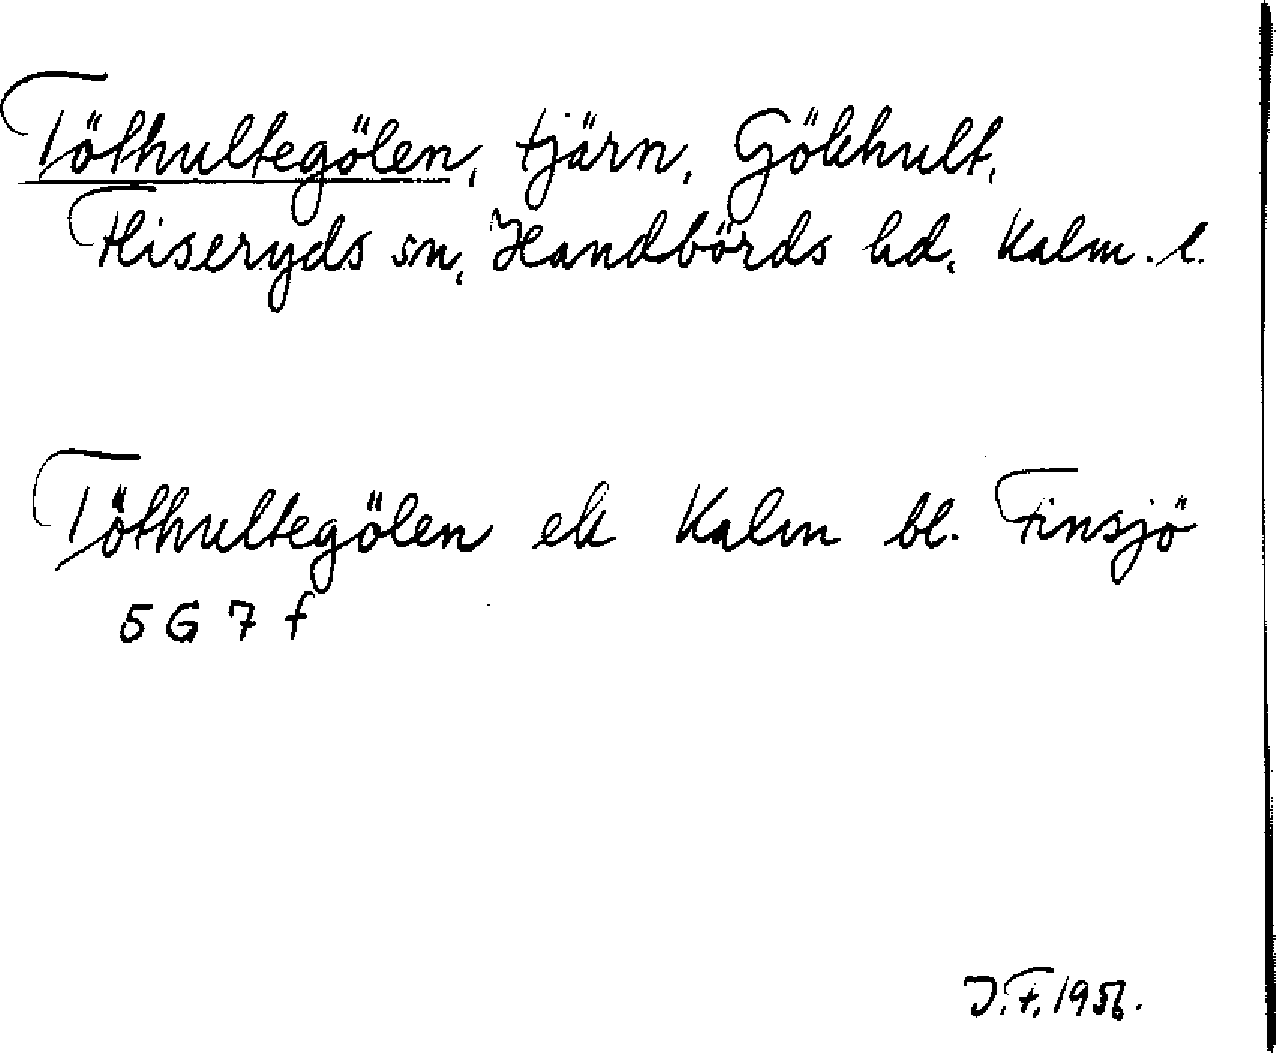 Töthultegölen, tjärn, Gökhult,
Fliseryds sn, Handbörds hd, Kalm. l.
Töthultegölen ek Kalm bl. Finsjö
5 G 7 f
J.F. 1956.